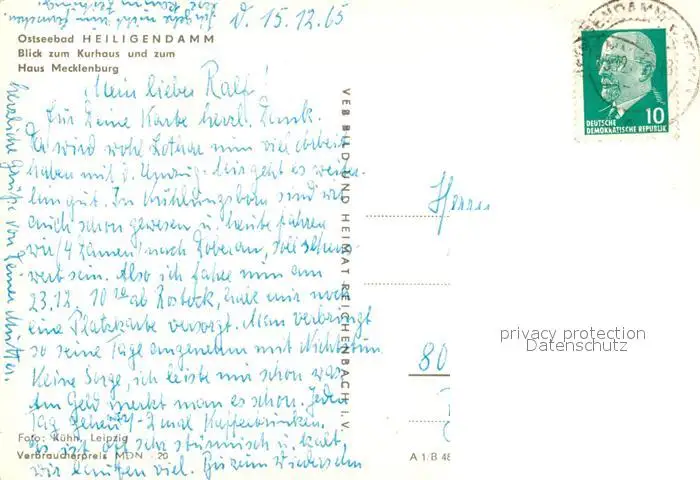 d. 15.12.65
Ostseebad HEILIGENDAMM
Blick zum Kurhaus und zum
Haus Mecklenburg
Mein lieber Ralf!
Für Deine Karte herzl. Dank.
Da wird wohl Lothar nun viel Arbeit
haben mit d. Umzug. Mir geht es weiter-
hin gut. In Kühlungsborn sind wir
auch schon gewesen u. heute fahren
wir (4 Damen) nach Doberan, soll sehens-
wert sein. Also ich fahre nun am
23.12. 10 ab Rostock, habe mir noch
eine Platzkarte besorgt. Man verbringt
so seine Tage angenehm mit Nichtstun
Keine Sorge, ich leiste mir schon was
am Geld merkt man es schon. Jeden
Tag 2 mal Kaffeetrinken.
es ist oft sehr stürmisch u. kalt
wir laufen viel. Bis zum Wiedersehn
herzliche Grüße von Deiner Mutter.
Foto: Kühn, Leipzig
Verbraucherpreis MDN -.20
VEB BILD UND HEIMAT REICHENBACH I. V.
A 1/B 48
DEUTSCHE
DEMOKRATISCHE REPUBLIK
10
Herrn
80
privacy protection
Datenschutz